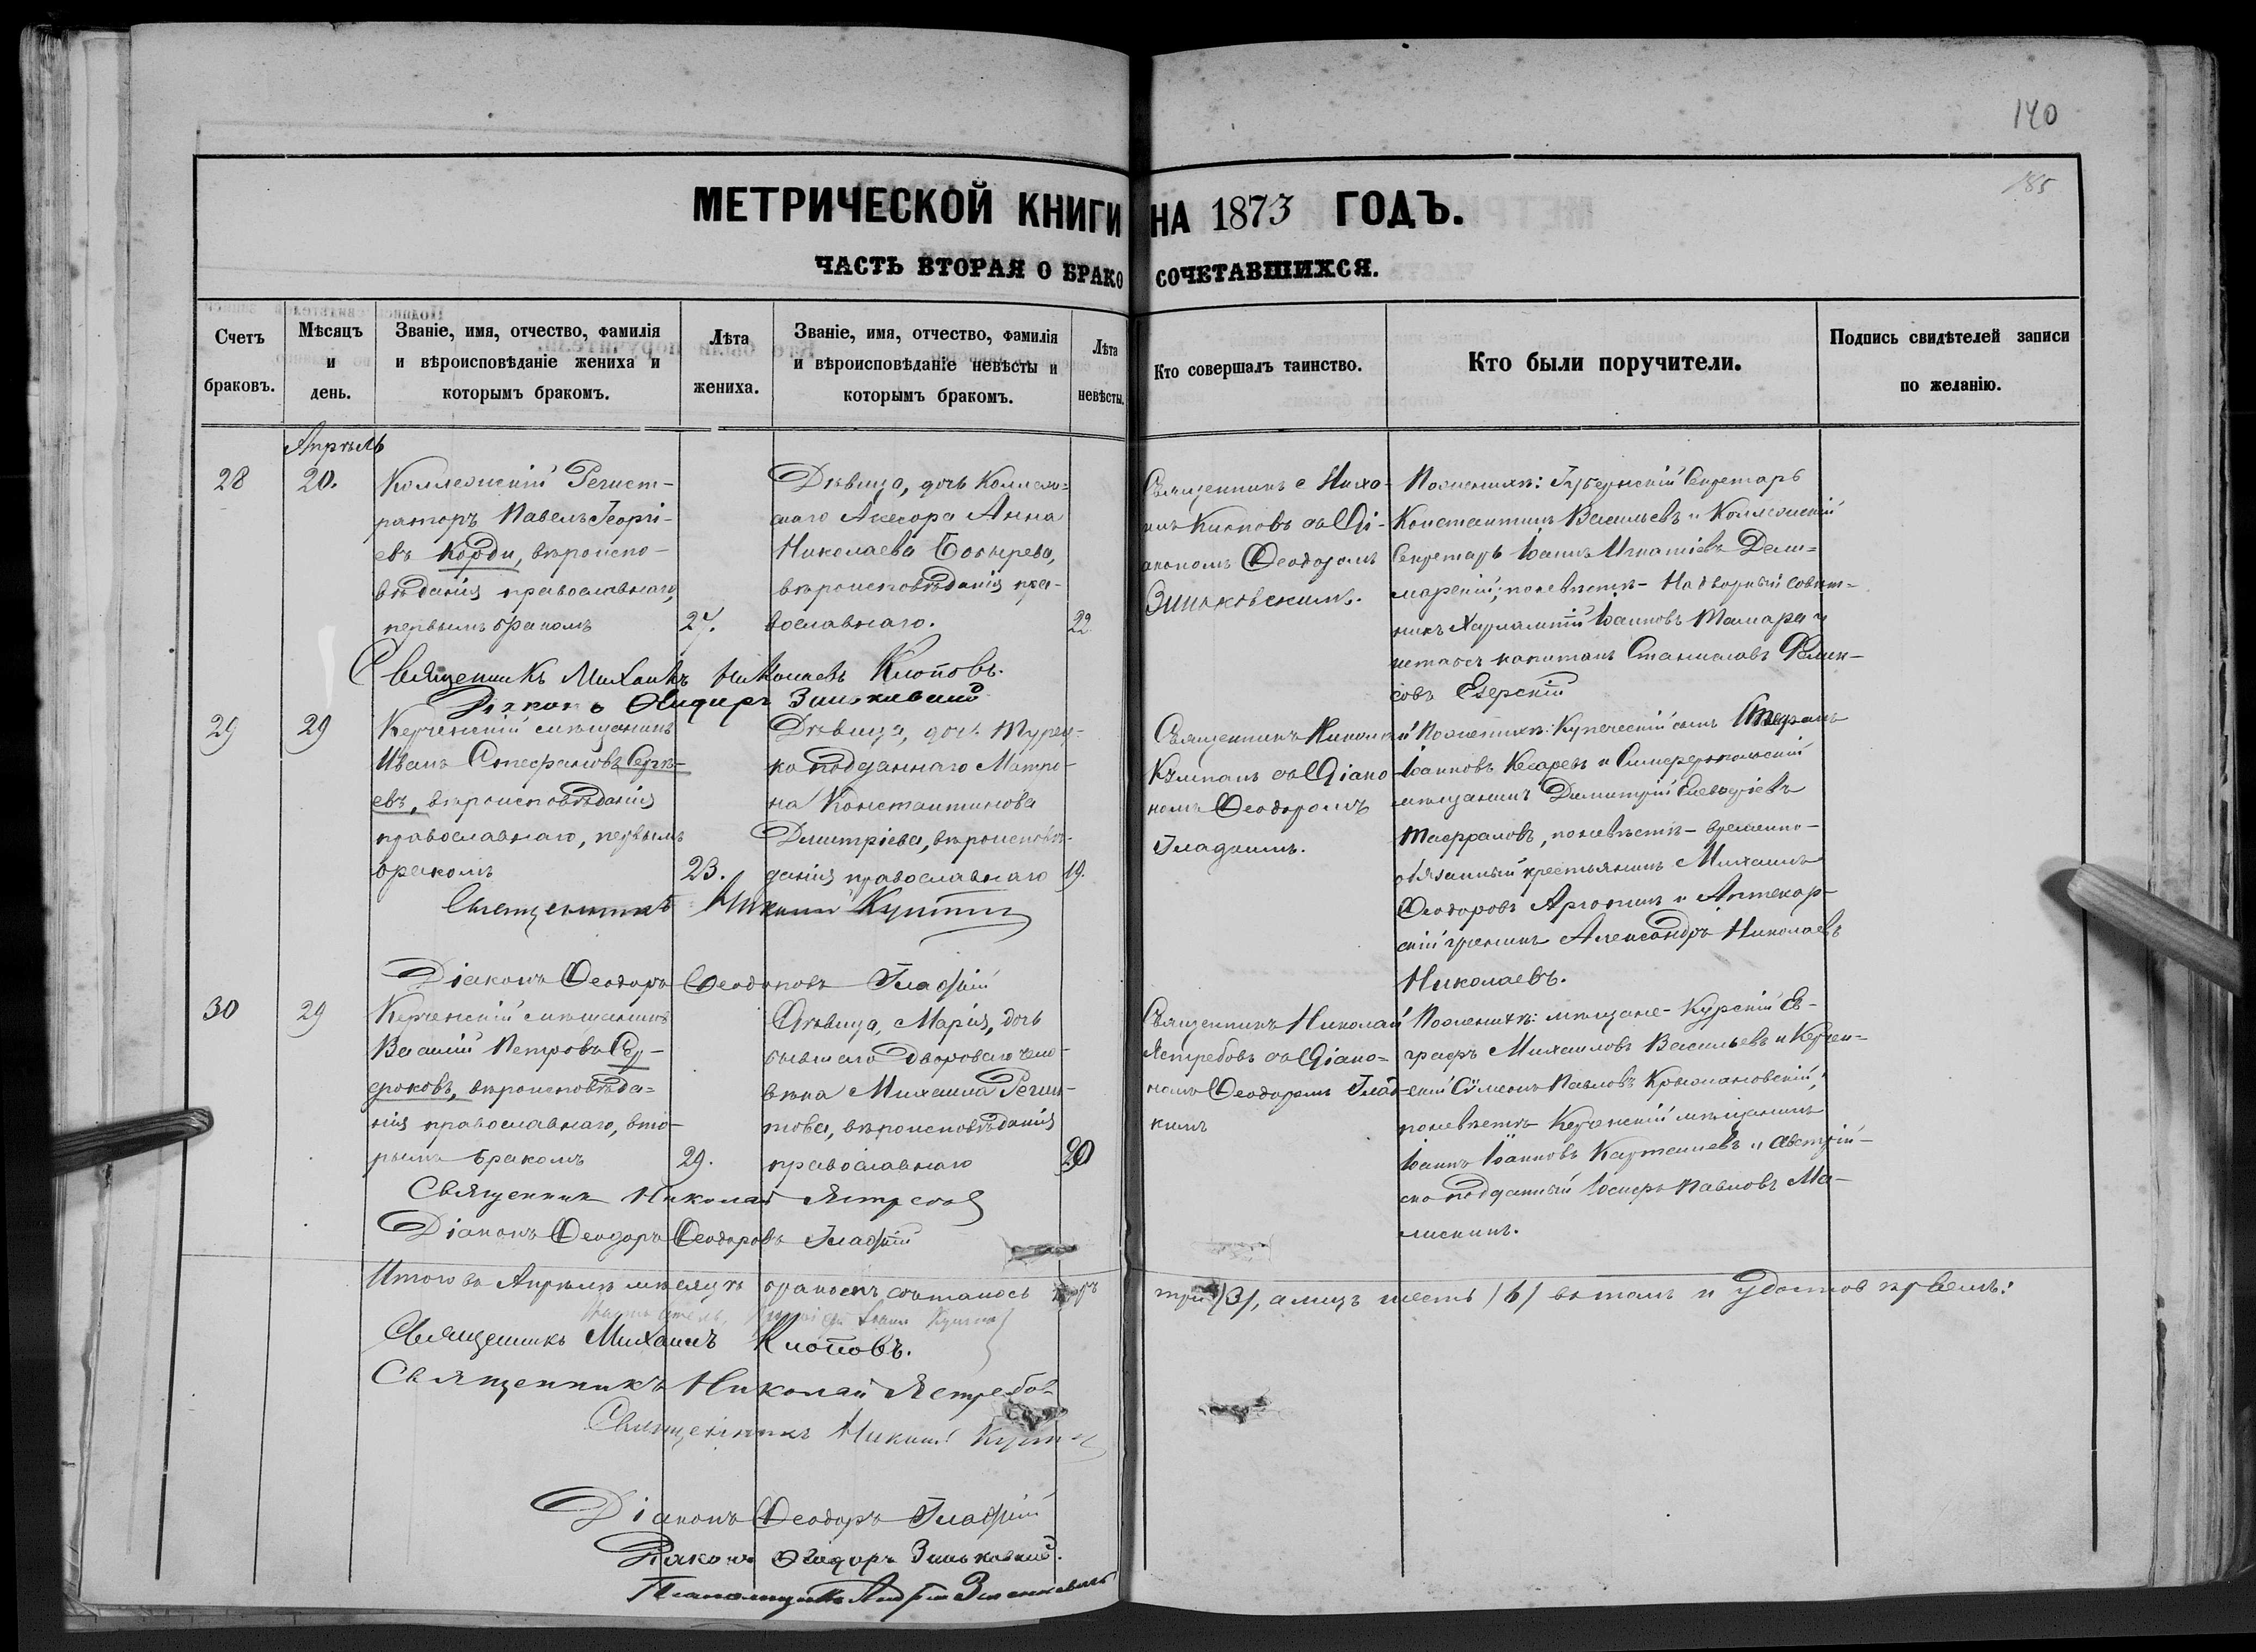 140
185
МЕТРИЧЕСКОЙ КНИГИ НА 1873 ГОДЪ.
ЧАСТЬ ВТОРАЯ О БРАКОСОЧЕТАВШИХСЯ.
Счетъ браковъ.
Мѣсяцъ и день.
Званіе, имя, отчество, фамилія и вѣроисповѣданіе жениха и которымъ бракомъ.
Лѣта жениха.
Званіе, имя, отчество, фамилія и вѣроисповѣданіе невѣсты и которымъ бракомъ.
Лѣта невѣсты.
Кто совершалъ таинство.
Кто были поручители.
Подпись свидѣтелей записи по желанію.
Апрѣль
28
20.
Коллежскій Регист-
раторъ Павелъ Георгі-
евъ Корди, вѣроиспо-
вѣданія православнаго,
первымъ бракомъ
27.
Дѣвица, дочь Коллеж-
скаго Асесора Анна
Николаева
вѣроисповѣданія пра-
вославнаго.
22
Священникъ
Клоповъ съ Ді-
акономъ Ѳеодоромъ
Зиньковскимъ.
По женихѣ: Губернскій Секретарь
Константинъ Васильевъ и Коллежскій
Секретарь Іоаннъ Игнатіевъ
по невѣстѣ - Надворный Совѣт-
никъ Харлампій Іоанновъ и
капитанъ Станиславъ
Езерскій
Священникъ Михаилъ Николаевъ Клоповъ.
Діаконъ Ѳеодоръ Зиньковскій
29
29
Керченскій мѣщанинъ
Иванъ Стефановъ Сергѣ-
евъ, вѣроисповѣданія
православнаго, первымъ
бракомъ
23.
Дѣвица, дочь Турец-
ко подданнаго Матро-
на Константинова
Дмитріева, вѣроисповѣ-
данія православнаго
19.
Священникъ Николай
съ Діако-
номъ Ѳеодоромъ
Гладкимъ.
По женихѣ: Купеческій сынъ Стефанъ
Іоанновъ Кесаревъ и Симферопольскій
мѣщанинъ Димитрій
по невѣстѣ - временно-
обязанный крестьянинъ Михаилъ
Ѳеодоровъ и Аптекар-
скій ученикъ Александръ Николаевъ
Николаевъ.
Священникъ
Діаконъ Ѳеодоръ Ѳеодоровъ Гладкій
30
29
Керченскій мѣщанинъ
Василій Петровъ
вѣроисповѣда-
нія православнаго, вто-
рымъ бракомъ
29.
Дѣвица, Марія, дочь
бывшаго Двороваго чело-
вѣка Михаила
вѣроисповѣданія
православнаго
20
Священникъ Николай
Ястребовъ съ Діако-
номъ Ѳеодоромъ Глад-
кимъ
По женихѣ: мѣщане - Курскій Ев-
графъ Михаиловъ Васильевъ и Керчен-
скій Сѵмеонъ Павловъ Крыжановскій;
по невѣстѣ Керченскій мѣщанинъ
Іоаннъ Іоанновъ Карташевъ и Австрій-
ско подданный Іосифъ Павловъ Ма-
Священникъ Николай Ястребовъ
Діаконъ Ѳеодоръ Ѳеодоровъ Гладкій
Итого въ Апрѣлѣ мѣсяцѣ браковъ состоялось три /3/, а лицъ шесть /6/ въ томъ и удостовѣряемъ:
Священникъ Михаилъ Клоповъ.
Священникъ Николай Ястребовъ
Священникъ
Діаконъ Ѳеодоръ Гладкій
Діаконъ Ѳеодоръ Зиньковскій.
Псаломщикъ Андрей